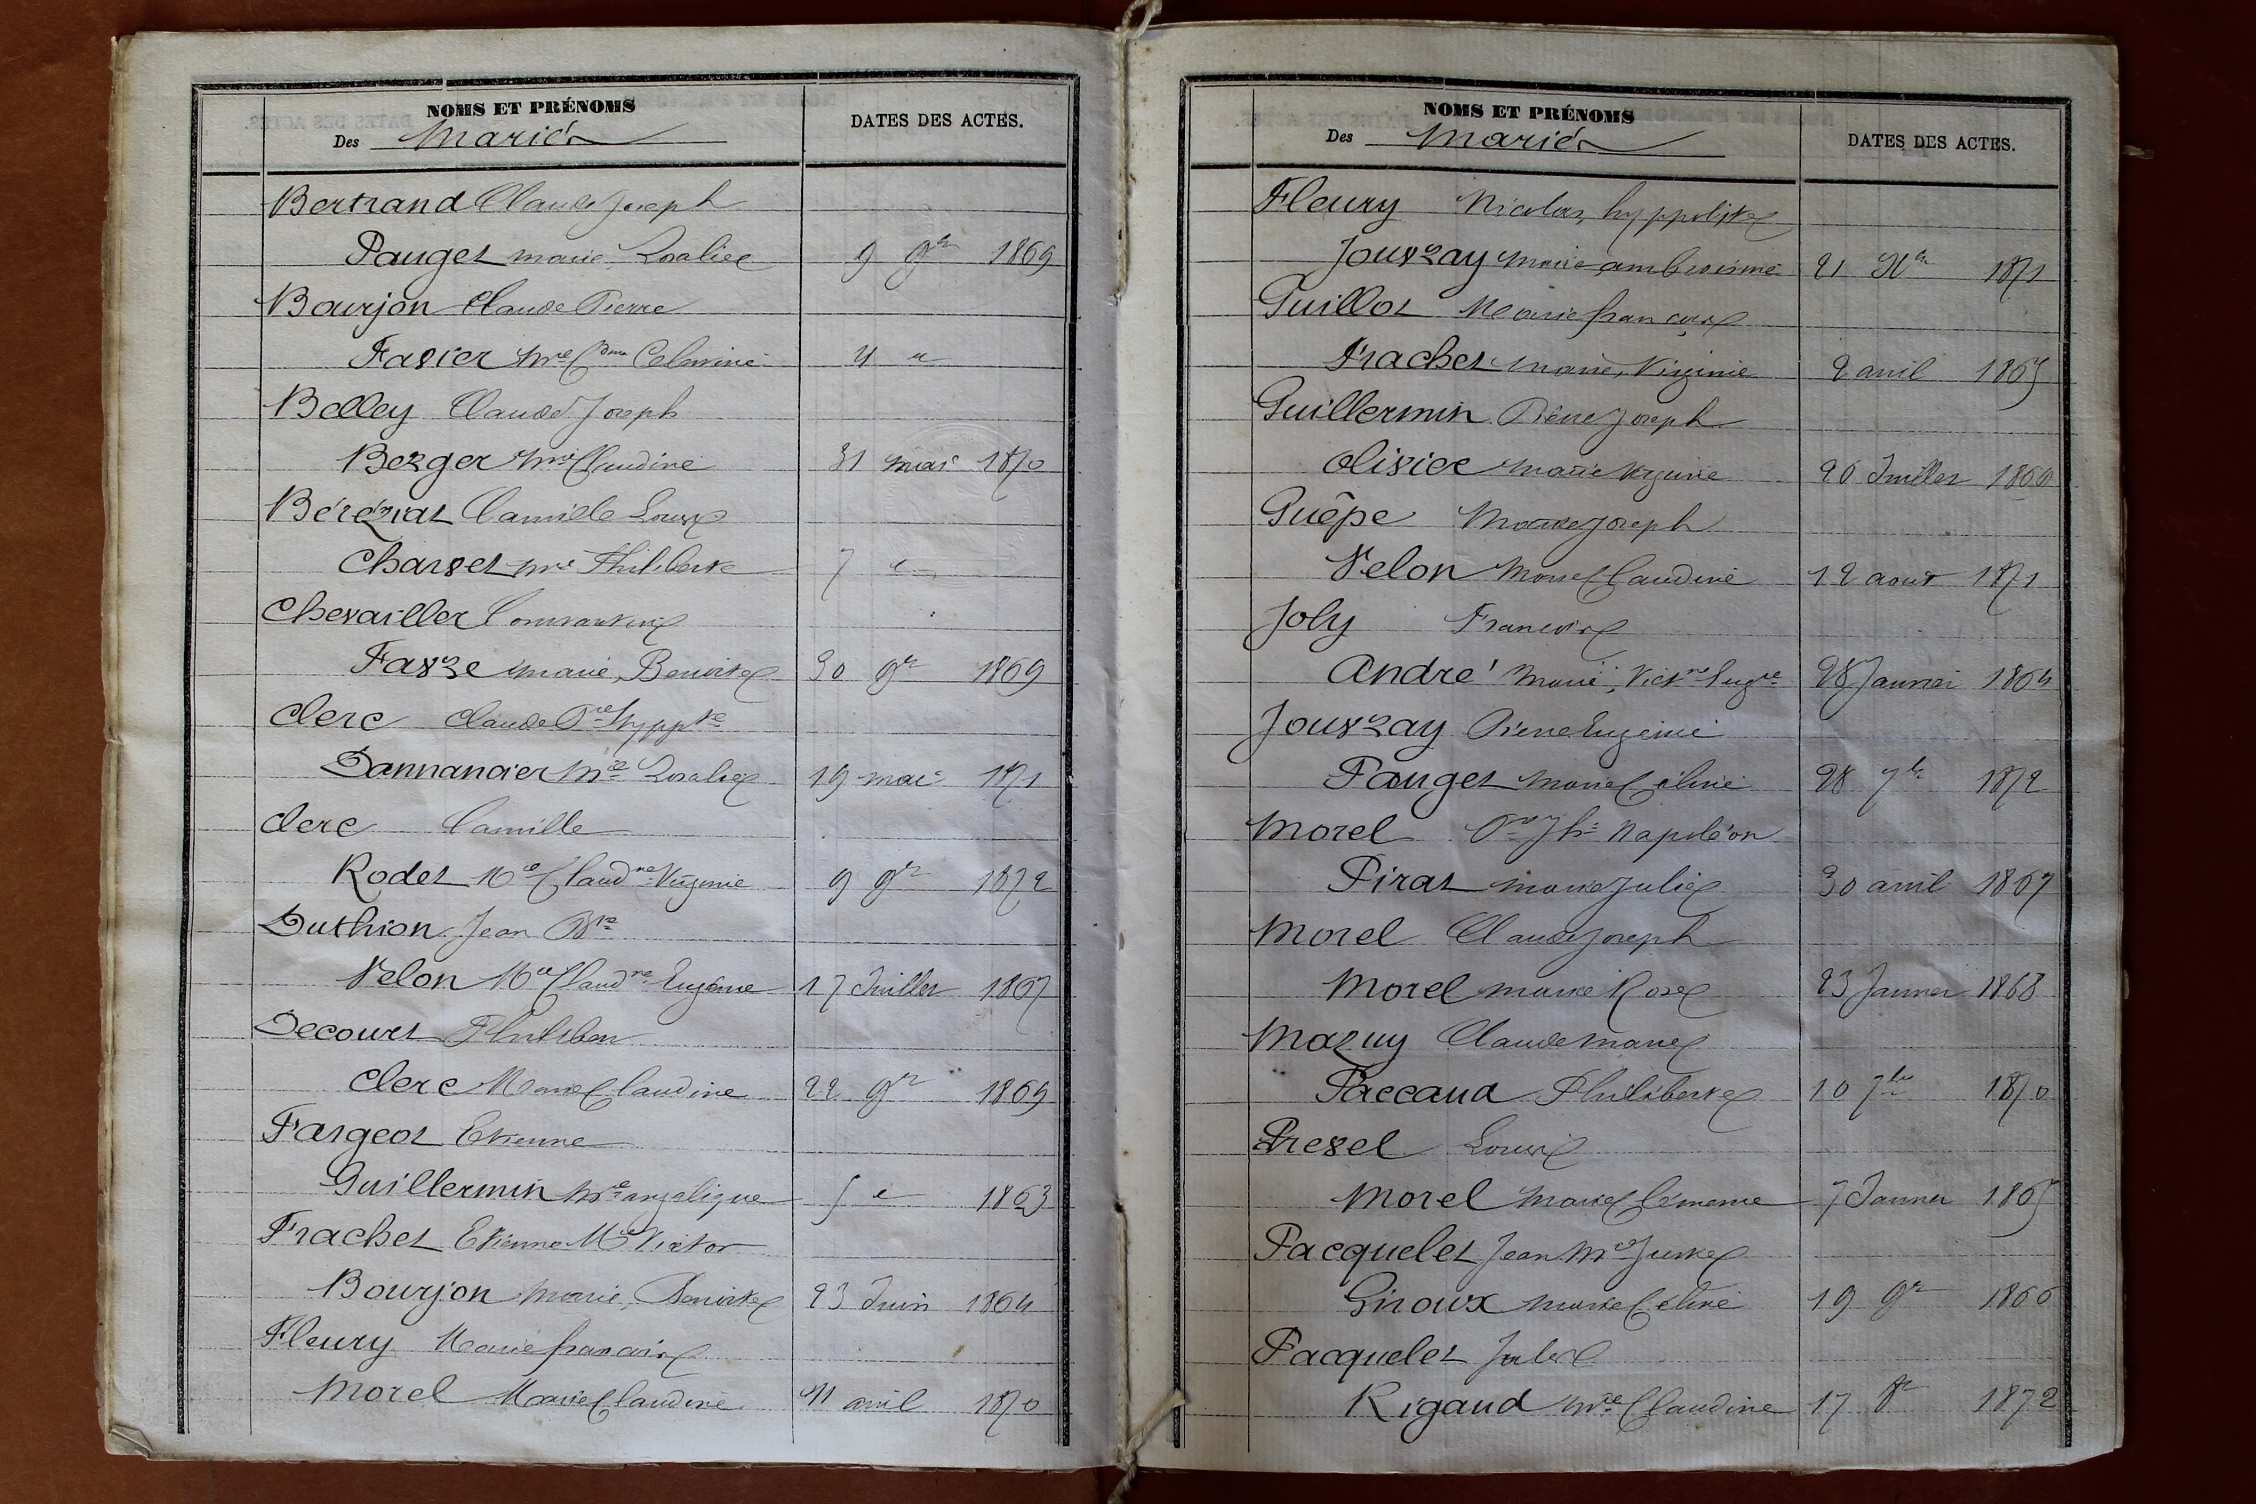 NOMS ET PRÉNOMS
Des Mariés
DATES DES ACTES.
Bertrand Claude Joseph
Pauget marie, Rosalie 9 9bre 1869
Bourjon Claude Pierre
Favier Mie Cdine Celestine 4 "
Belley Claude Joseph
Berger Mie Claudine 31 mai 1870
Béréziat Camille Louis
Charvet Mie Philiberte 7 "
Chevailler Constantin
Favre marie, Benoite 30 9bre 1869
Clerc Claude Pre Hyppte
Dannancier Mie Rosalie 19 mai 1871
Clerc Camille
Rodet Mie Claudne Virginie 9 9bre 1872
Duthion Jean Bte
Velon Mie Claudne Eugénie 17 Juillet 1867
Decourt Philibert
Clerc Marie Claudine 22 9bre 1869
Fargeot Etienne
Guillermin Mie angelique 5 " 1863
Frachet Etienne Mie Victor
Bourjon Marie, Benoite 23 Juin 1864
Fleury Marie françois
Morel Marie Claudine 11 avril 1870
NOMS ET PRÉNOMS
Des Mariés
DATES DES ACTES.
Fleury Nicolas, hyppolite
Jouvray Marie ambroisine 21 Xbre 1871
Guillot Marie françois
Frachet marie, Virginie 2 avril 1865
Guillermin Pierre Joseph
Olivier Marie Virginie 26 Juillet 1866
Guêpe Marie Joseph
Velon Marie Claudine 12 aout 1871
Joly François
André Marie, Victne Eugnie 28 Janvier 1864
Jouvray Pierre Eugène
Pauget Marie Céline 28 7bre 1872
Morel Pre Jh Napoléon
Pirat marie Julie 30 avril 1867
Morel Claude Joseph
Morel marie Rose 23 Janvier 1868
Mazuy Claude Marie
Paccaud Philiberte 10 7bre 1870
Prevel Louis
Morel Marie Clémence 7 Janvier 1865
Pacquelet Jean Mie Juste
Giroux Marie Céline 19 9bre 1866
Pacquelet Jules
Rigaud Mie Claudine 17 8bre 1872